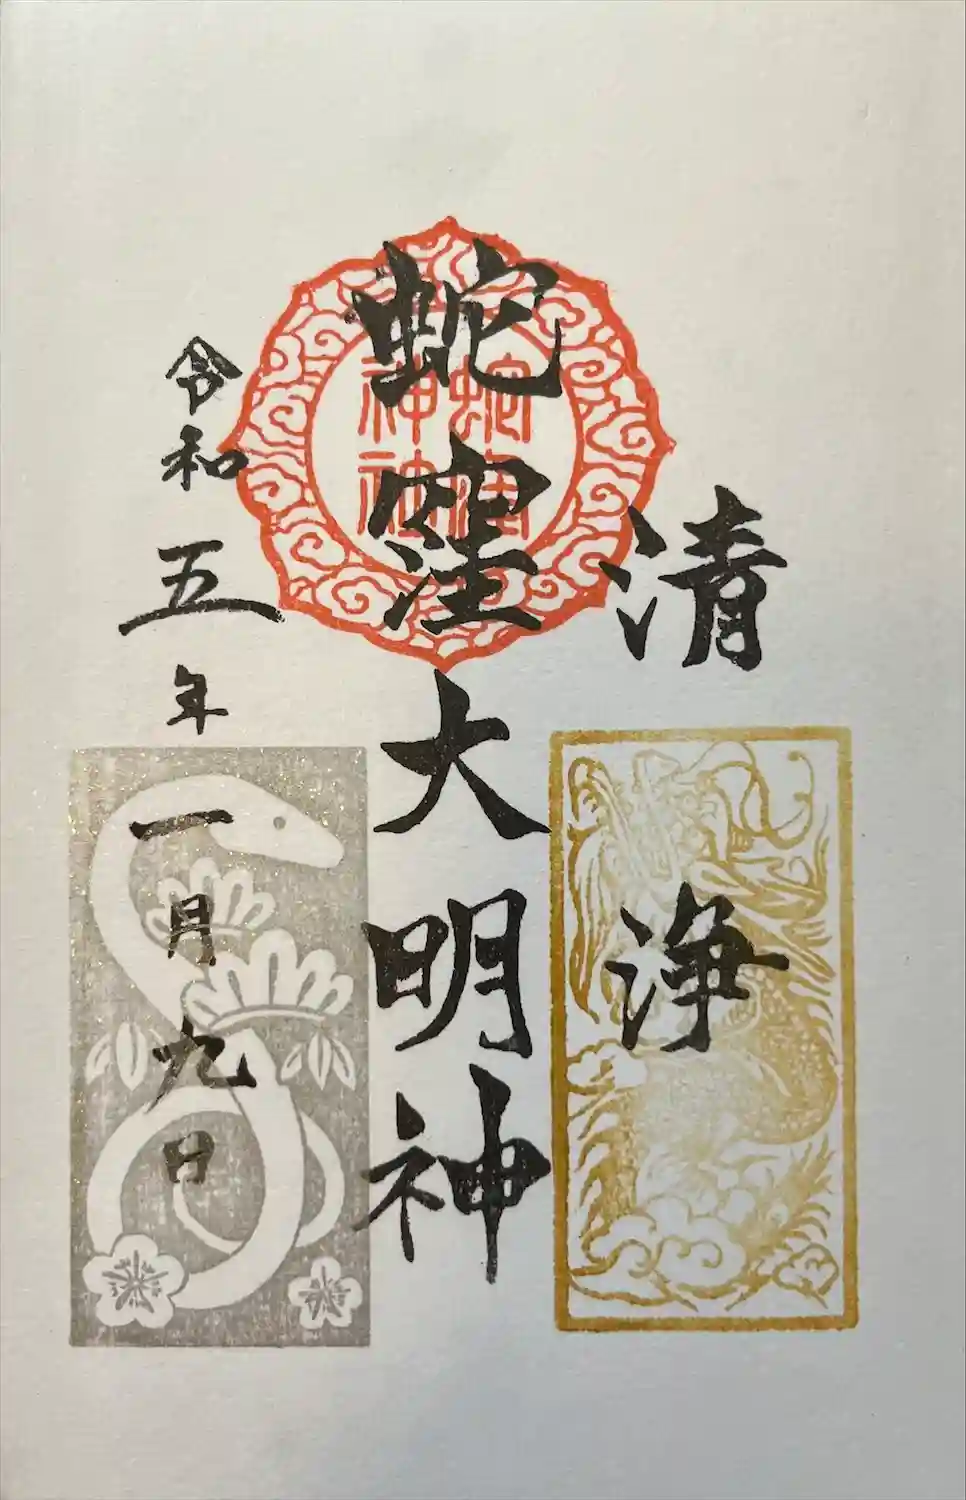 清浄
蛇窪大明神
蛇窪
神社
令和五年一月九日